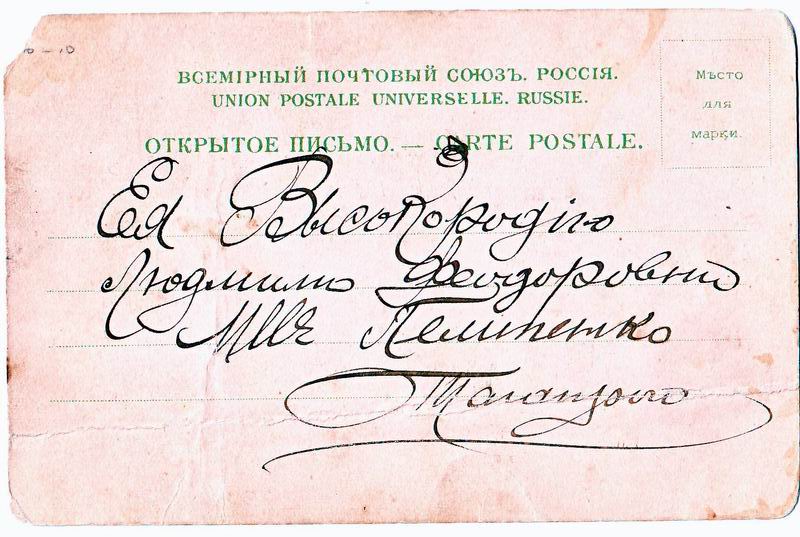 ВСЕМІРНЫЙ ПОЧТОВЫЙ СОЮЗЪ. РОССІЯ.
UNION POSTALE UNIVERSELLE. RUSSIE.
ОТКРЫТОЕ ПИСЬМО. — CARTE POSTALE.
Мѣсто
для
марки.
Ея Высокородію
Людмилѣ Феодоровнѣ
Mlle